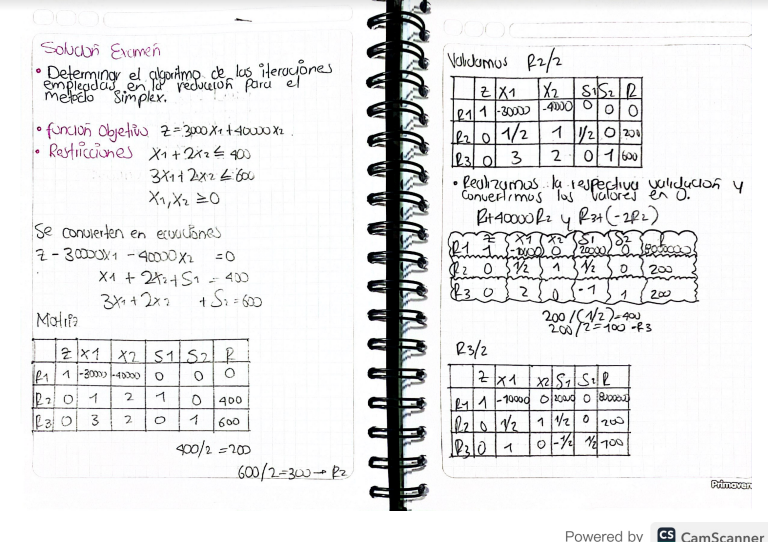 Solución Examen
• Determinar el algoritmo de las iteraciones
empleadas en la reducción para el
metodo simplex.
• función Objetivo Z=3000X1+40000X2.
• Restricciones X1+2X2≤400
3X1+2X2≤600
X1,X2≥0
Se convierten en ecuaciones
Z-30000X1-40000X2 =0
X1+2X2+S1=400
3X1+2X2 +S2=600
Matriz
Z X1 X2 S1 S2 R
R1 1 -30000 -40000 0 0 0
R2 0 1 2 1 0 400
R3 0 3 2 0 1 600
400/2=200
600/2=300→R2
Validamos R2/2
Z X1 X2 S1 S2 R
R1 1 -30000 -40000 0 0 0
R2 0 1/2 1 1/2 0 200
R3 0 3 2 0 1 600
• Realizamos la respectiva validación y
convertimos los valores en 0.
R1+40000R2 y R3+(-2R2)
Z X1 X2 S1 S2
R1 1 -10000 0 20000 0 8000000
R2 0 1/2 1 1/2 0 200
R3 0 2 0 -1 1 200
200/(1/2)=400
200/2=100-R3
R3/2
Z X1 X2 S1 S2 R
R1 1 -10000 0 20000 0 8000000
R2 0 1/2 1 1/2 0 200
R3 0 1 0 -1/2 1/2 100
Primavera
Powered by CS CamScanner